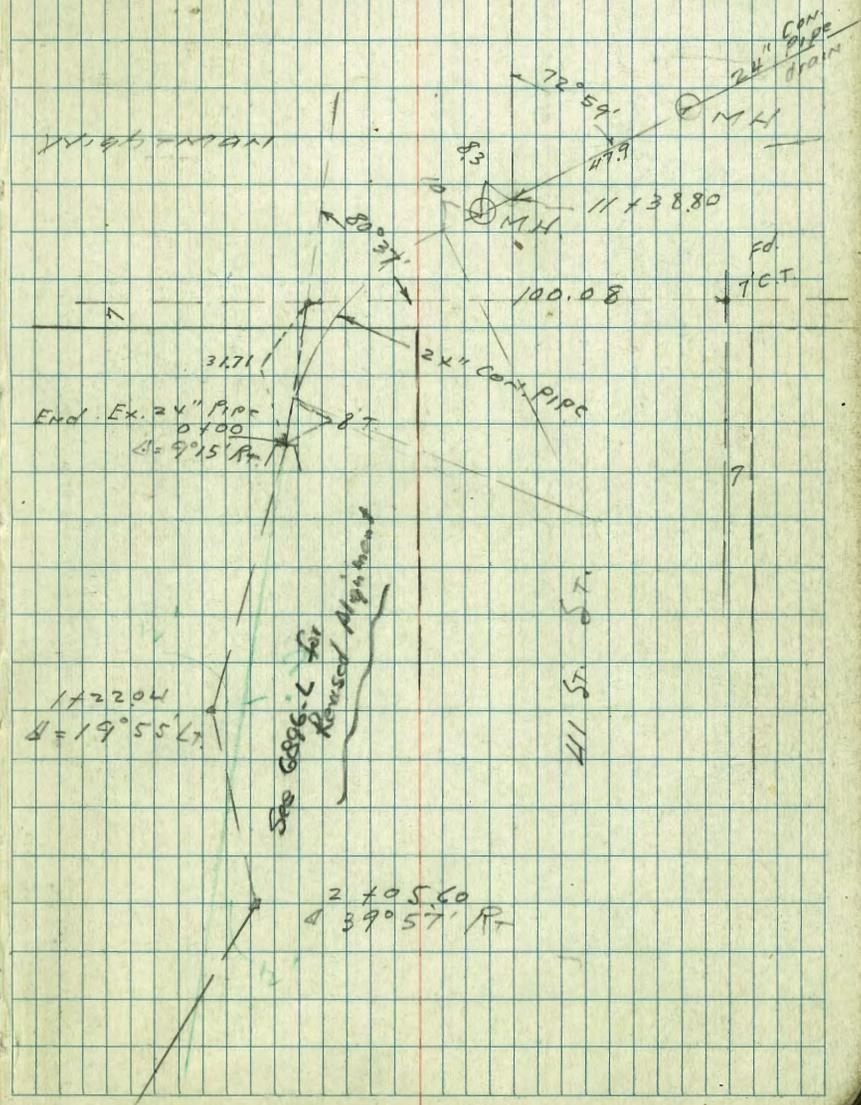 24" Con.
Pipe
drain
72° 59'
MH
47.9
8.3
10
MH.
11+38.80
80° 37'
Fd.
7' C.T.
100.08
7
31.71
24" Con. Pipe
End Ex. 24" Pipe
0+00
Δ = 9° 15' Rt.
8' T.
7
See 6896-L for
Revised Alignment
41 St. St.
1+22.04
Δ = 19° 55' Lt.
2+05.60
Δ 39° 57' Rt